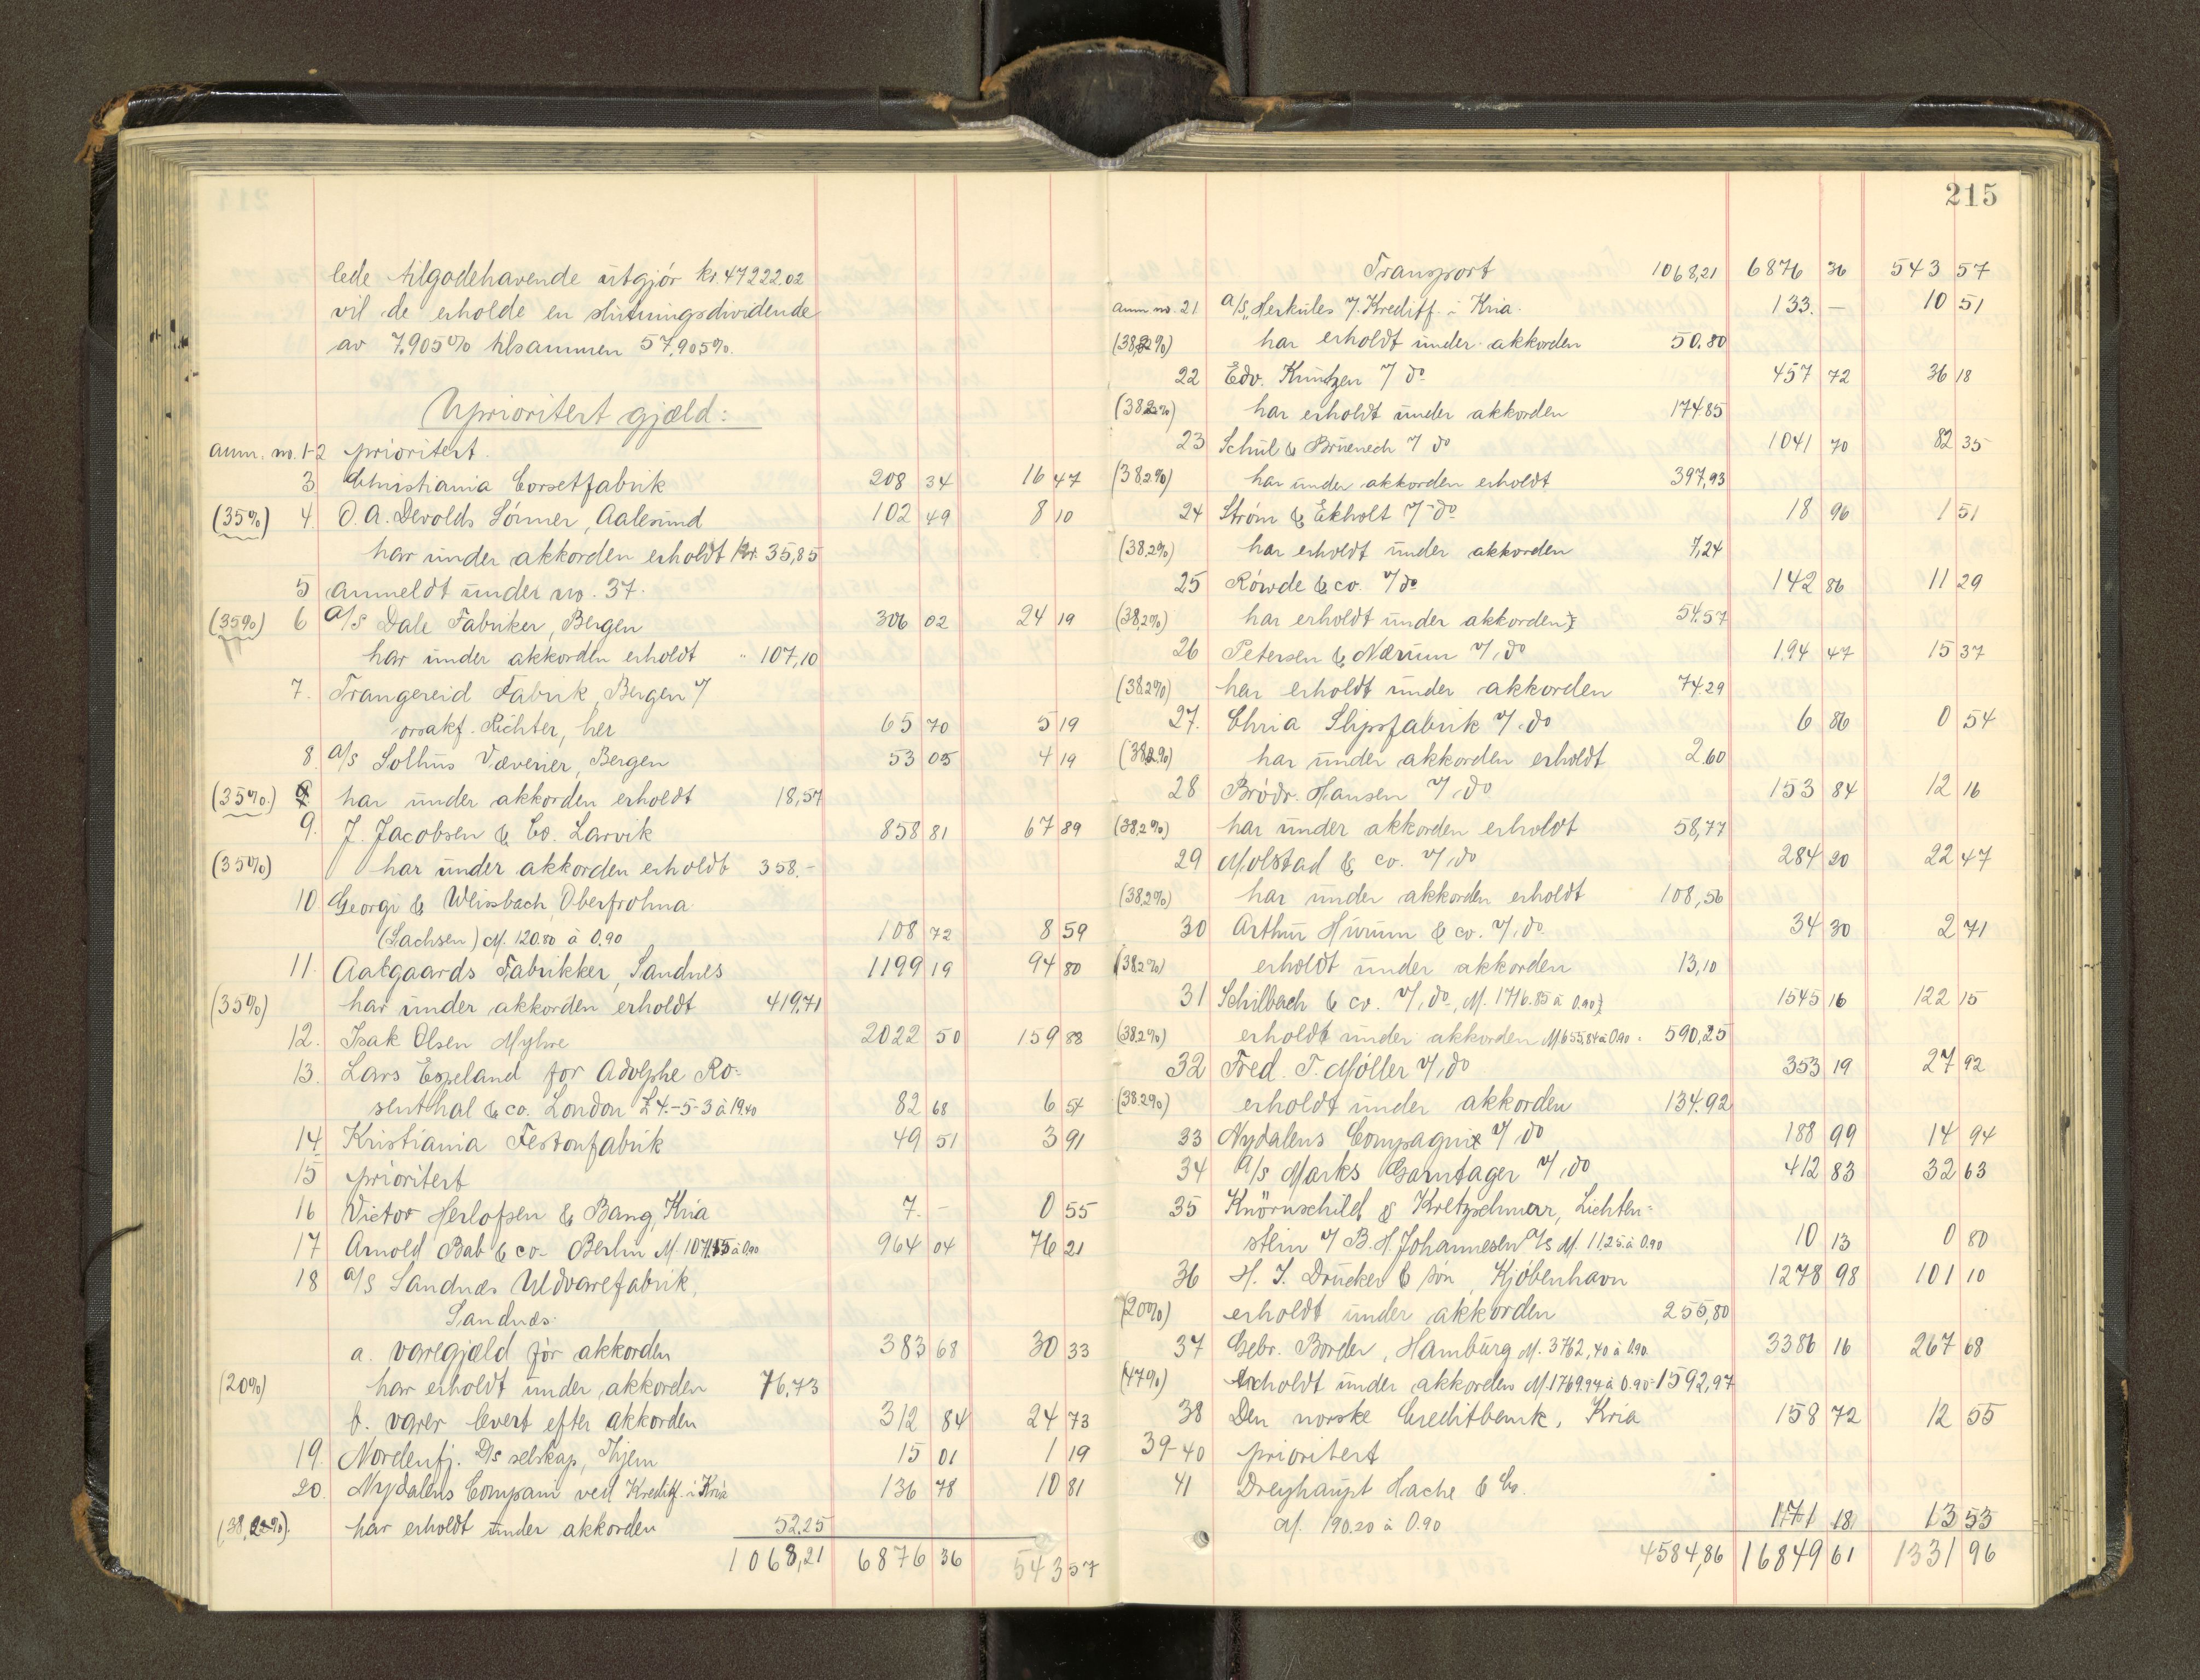 lede tilgodehavende utgjör kr. 47222.02
vil de erholde en slutningsdividende
av 7,905% tilsammen 57,905%.
Uprioritert gjæld:
anm. no. 1-2 prioritert.
3 Christiania Corsetfabrik 208 34 16 47
(35%) 4. O. A. Devolds Sönner, Aalesund 102 49 8 10
har under akkorden erholdt kr. 35,85
5 Anmeldt under no. 37.
(35%) 6 A/S Dale Fabriker, Bergen 306 02 24 19
har under akkorden erholdt " 107,10
7. Trangereid Fabrik, Bergen v/
orsakf. Richter, her 65 70 5 19
8. A/S Solhus Væverier, Bergen 53 05 4 19
(35%) har under akkorden erholdt 18,57
9. J. Jacobsen & Co. Larvik 858 81 67 89
(35%) har under akkorden erholdt 358.-
10. Georgi & Weissbach, Oberfrohna
(Sachsen) M. 120.80 à 0.90 108 72 8 59
11. Aalgaards Fabrikker, Sandnes 1199 19 94 80
(35%) har under akkorden erholdt 419,71
12. Isak Olsen Myhre 2022 50 159 88
13. Lars Espeland for Adolphe Ro-
senthal & co. London £ 4.-5-3 à 19.40 82 68 6 54
14 Kristiania Festonfabrik 49 51 3 91
15 prioritert
16 Victor Herlofsen & Bang, Kria 7. - 0 55
17 Arnold Bab & co. Berlin M. 1071.15 à 0.90 964 04 76 21
18 A/S Sandnæs Uldvarefabrik,
Sandnæs.
a. varegjæld för akkorden 383 68 30 33
(20%) har erholdt under akkorden 76.73
b. varer levert efter akkorden 312 84 24 73
19. Nordenfj. D/s selskap, Thjem 15 01 1 19
20. Nydalens Compani ved Kreditf. i Kria 136 78 10 81
(38,2%). har erholdt under akkorden 52.25
1068,21 6876 36 543 57
215
Transport 1068,21 6876 36 543 57
anm. no. 21 A/S "Herkules v/ Kreditf. i Kria. 133. - 10 51
(38,2%) har erholdt under akkorden 50.80
22 Edv. Kuntzen v/ do 457 72 36 18
(38.2%) har erholdt under akkorden 174.85
23 Schul & Bruenech v/ do 1041 70 82 35
(38.2%) har under akkorden erholdt 397,93
24 Ström & Ekholt v/ do 18 96 1 51
(38,2%) har erholdt under akkorden 7,24
25 Röwde & co. v/ do 142 86 11 29
(38,2%) har erholdt under akkorden 54.57
26 Petersen & Nærum v/ do 194 47 15 37
(38.2%) har erholdt under akkorden 74.29
27. Chria Slipsfabrik v/ do 6 86 0 54
(38.2%) har under akkorden erholdt 2.60
28 Brödr. Hansen v/ do 153 84 12 16
(38,2%) har under akkorden erholdt 58,77
29 Molstad & co. v/ do 284 20 22 47
(38,2%) har under akkorden erholdt 108,56
30 Arthur Hurum & co. v/ do 34 30 2 71
(38.2%) erholdt under akkorden 13,10
31 Schilbach & co. v/ do, M. 1716.85 à 0.90 1545 16 122 15
(38.2%) erholdt under akkorden M. 655,84 à 0.90 590,25
32 Fred. T. Möller v/ do 353 19 27 92
(38.2%) erholdt under akkorden 134.92
33 Nydalens Compagni v/ do 188 99 14 94
34 A/S Marks Garnlager v/ do 412 83 32 63
35 Knörnschild & Kretzschmerr, Lichten-
stein v/ B. H. Johannesen A/S M. 11,25 à 0.90 10 13 0 80
36 H. I. Drucker & sön, Kjöbenhavn 1278 98 101 10
(20%) erholdt under akkorden 255,80
37 Gebr. Border, Hamburg M. 3762,40 à 0.90 3386 16 267 68
(47%) erholdt under akkorden M. 1769.94 à 0.90 1592,97
38 Den norske Creditbank, Kria 158 72 12 55
39-40 prioritert
41 Dreyhaupt Hache & Co.
M. 190.20 à 0.90 171 18 13 53
4584,86 16849 61 1331 96